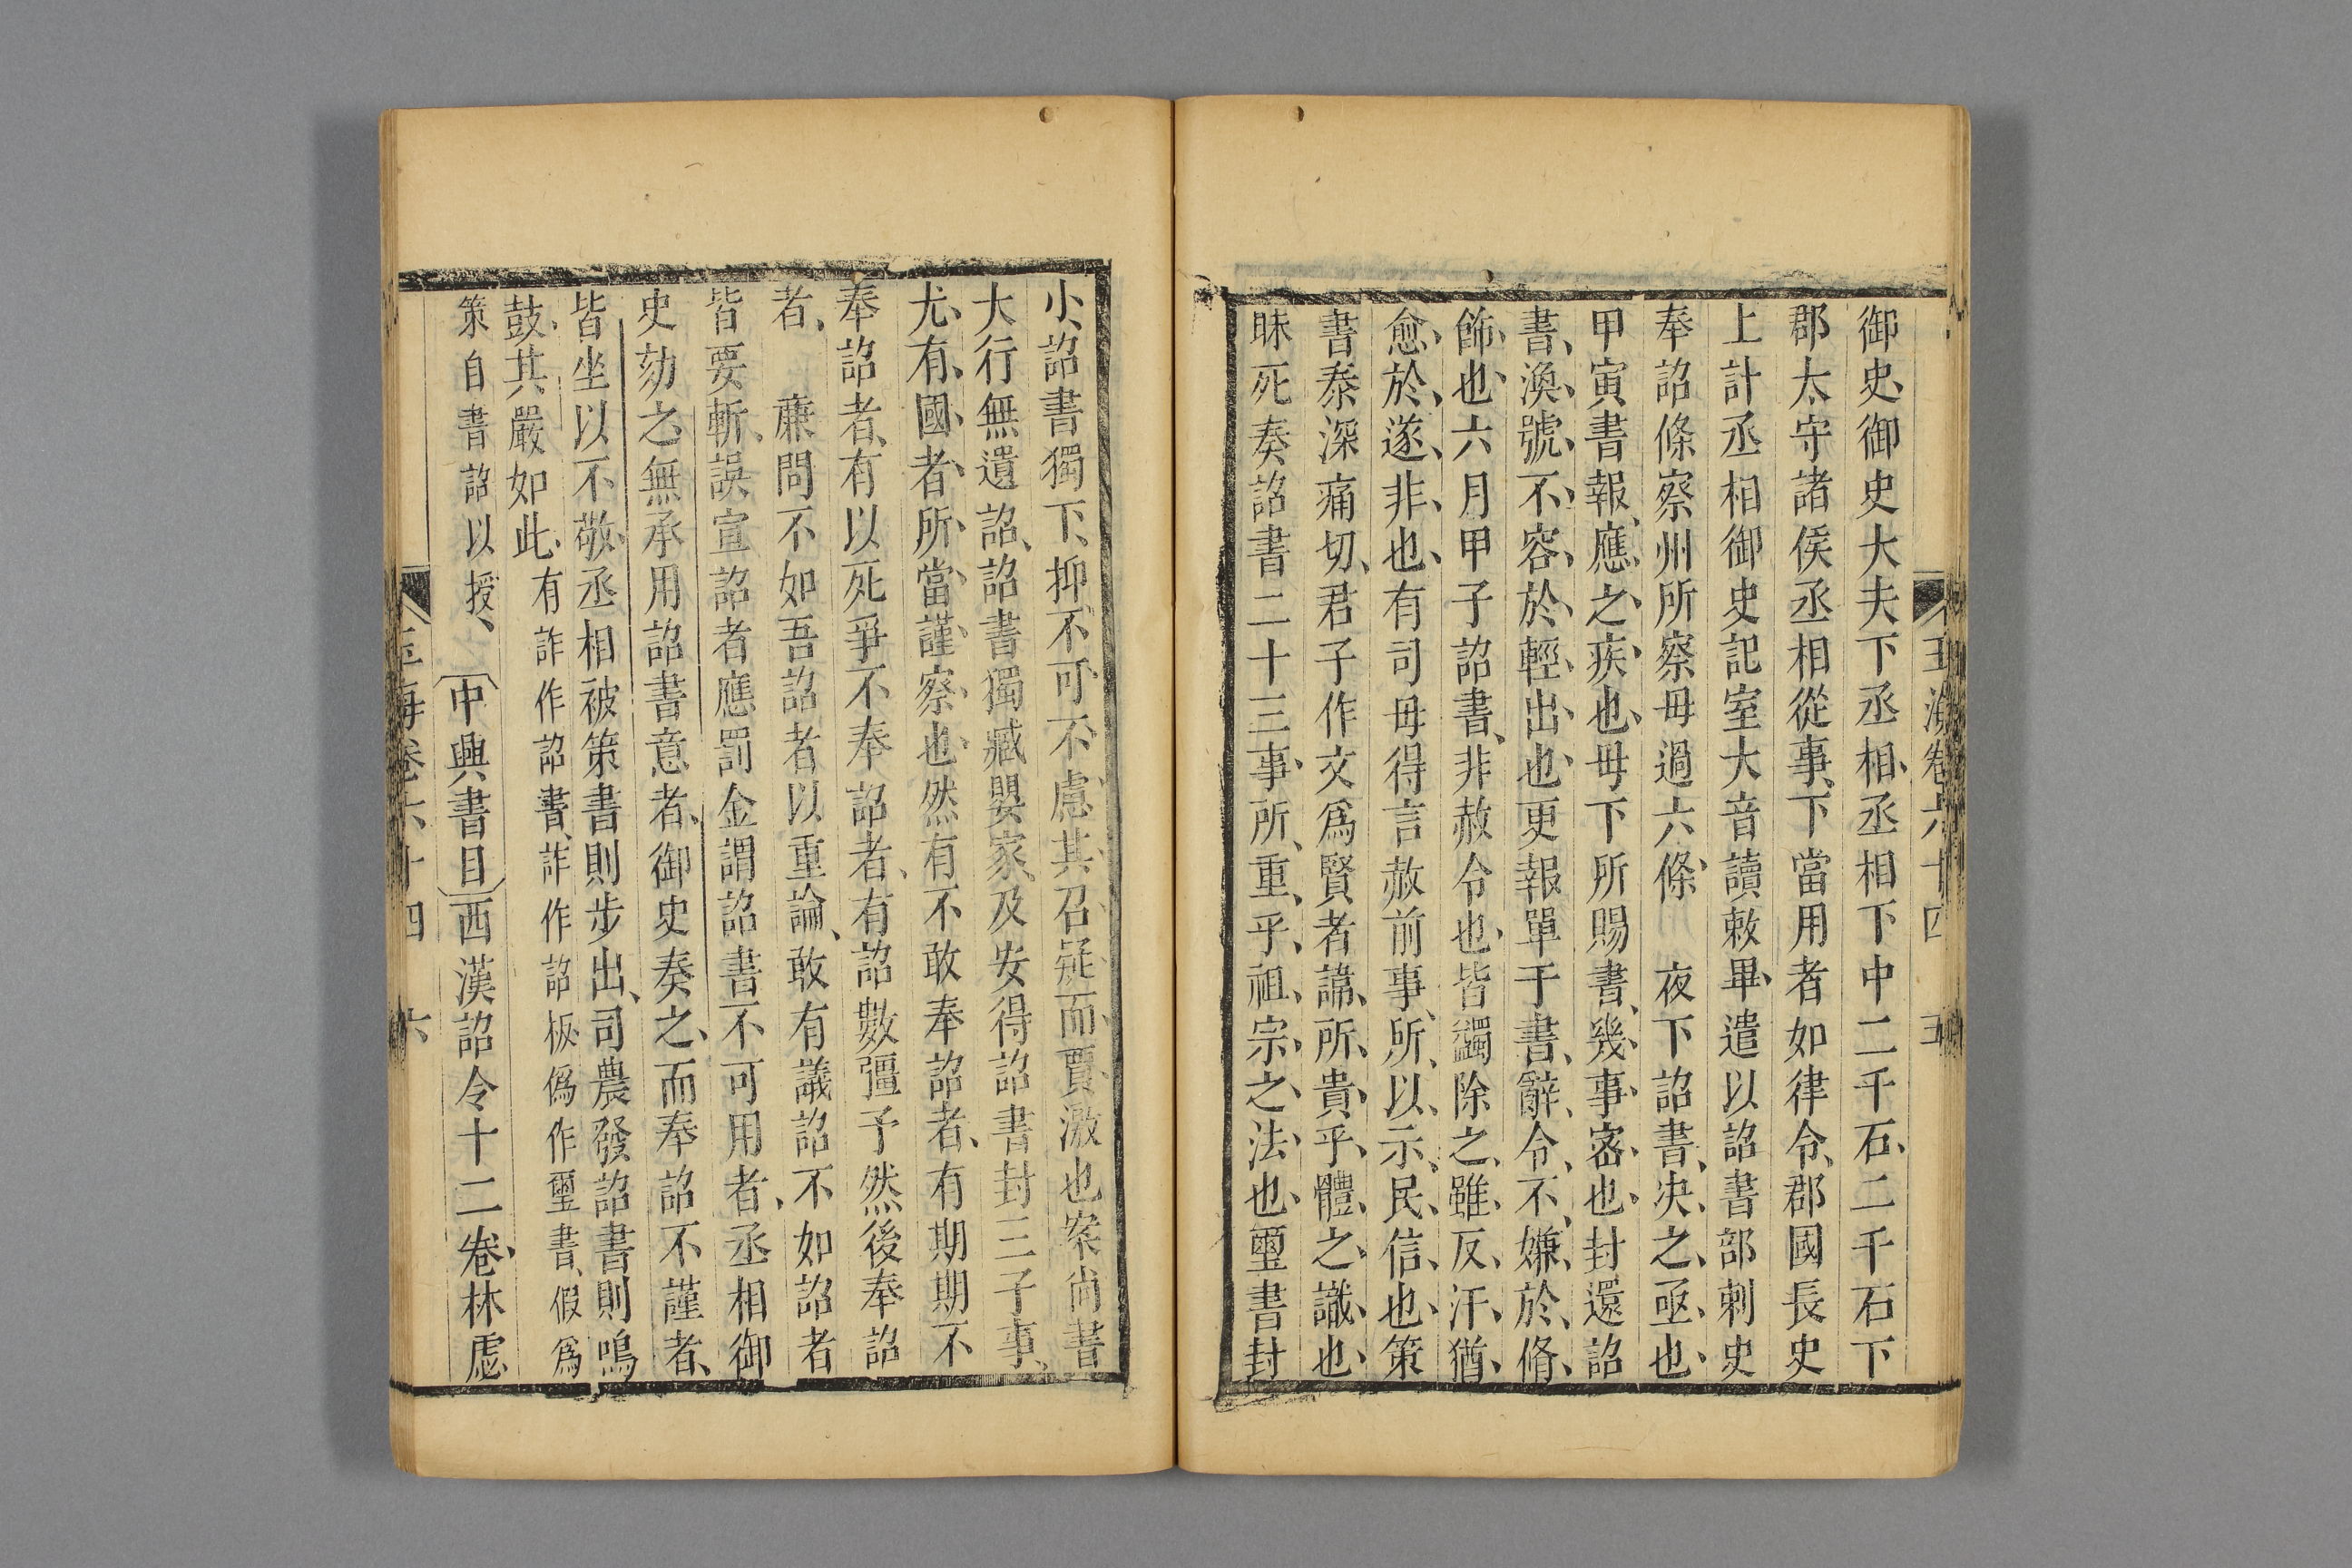 玉海卷六十四 五
御史、御史大夫下丞相、丞相下中二千石、二千石下
郡太守諸侯丞相從事、下當用者如律令、郡國長史
上計丞相御史記室大音讀敕畢、遣以詔書部刺史
奉詔條察州所察毋過六條、 夜下詔書、決、之、亟、也、
甲寅書報、應、之、疾、也、毋下所賜書、幾、事、密、也、封還詔
書、渙、號、不、容、於、輕、出、也、更報單于書、辭、令、不、嫌、於、脩、
飾、也、六月甲子詔書、非赦令也、皆蠲除之、雖、反、汗、猶、
愈、於、遂、非、也、有司毋得言赦前事、所、以、示、民、信、也、策
書泰深痛切、君子作文爲賢者諱、所、貴、乎、體、之、識、也、
昧死奏詔書二十三事、所、重、乎、祖、宗、之、法、也、璽書封
小、詔書獨下、抑不可不慮其召疑而賈激也案尚書
大行無遺詔、詔書獨臧嬰家、及安得詔書封三子事、
尤、有、國、者、所、當、謹、察、也、然有不敢奉詔者、有期期不
奉詔者、有以死爭不奉詔者、有詔數彊予然後奉詔
者、 廉問不如吾詔者以重論、敢有議詔不如詔者
皆要斬、誤宣詔者應罰金謂詔書不可用者、丞相御
史劾之、無承用詔書意者、御史奏之、而奉詔不謹者、
皆坐以不敬、丞相被策書則步出、司農發詔書則鳴
鼓、其嚴如此、有詐作詔書、詐作詔板僞作璽書、假爲
策自書詔以授、 中興書目 西漢詔令十二卷、林虙
玉海卷六十四 六